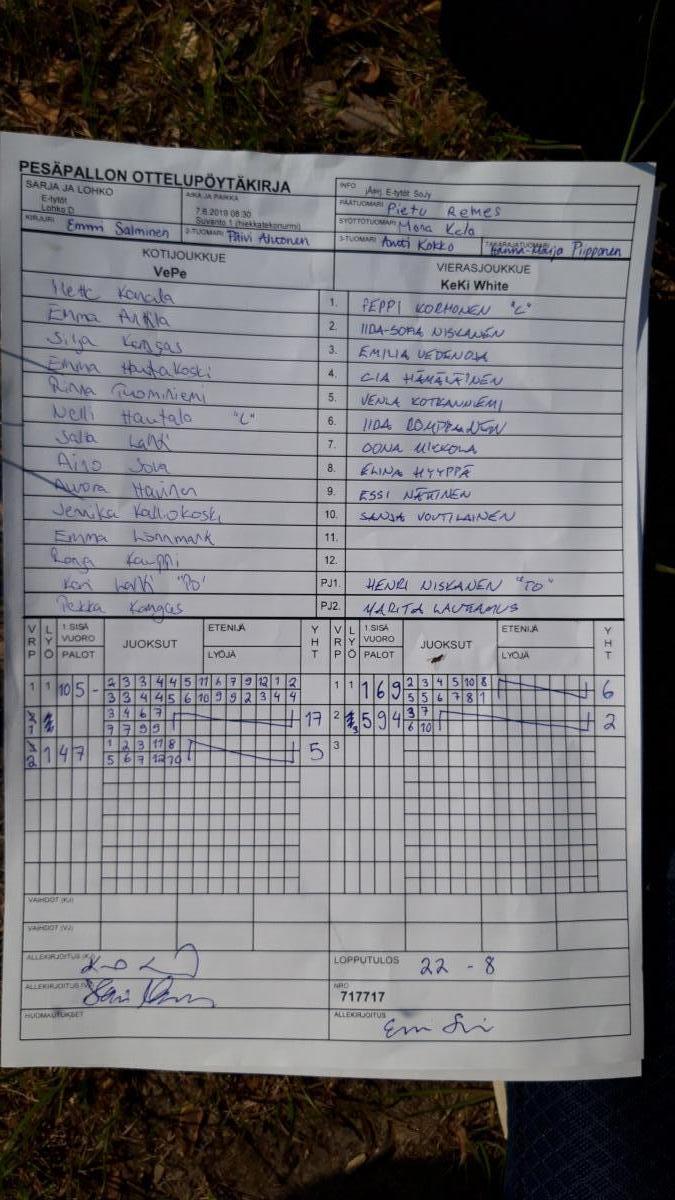 PESÄPALLON OTTELUPÖYTÄKIRJA
SARJA JA LOHKO
E-tytöt
Lohko D
AIKA JA PAIKKA
7.6.2019 08:30
Suvanto 1 (hiekkatekonurmi)
INFO
E-tytöt SoJy
PÄÄTUOMARI Pietu Remes
SYÖTTÖTUOMARI Mona Kela
KIRJURI Emmi Salminen
2-TUOMARI Päivi Ahtonen
3-TUOMARI Antti Kokko
TAKARAJATUOMARI Hanna-Marja Piipponen
KOTIJOUKKUE
VePe
VIERASJOUKKUE
KeKi White
1. PEPPI KORHONEN "C"
Emma Anttila 2. IIDA-SOFIA NISKANEN
Silja Kangas 3. EMILIA
Emma Hautakoski 4. HÄMÄLÄINEN
Rinna Tuominiemi 5. VENLA KOTKANNIEMI
Nelli Hautala "C" 6. IIDA ROMPPANEN
Salla Lahti 7. OONA MIKKOLA
Aino 8. ELINA HYYPPÄ
Aurora 9. ESSI NÄRHINEN
Jennika Kalliokoski 10. SANJA VOUTILAINEN
Emma Lönnmark 11.
Ronja Kauppi 12.
Lahti "PO" PJ1. HENRI NISKANEN "TO"
Pekka Kangas PJ2. MARITA LAUTAMUS
VRP LYÖ 1.SISÄ VUORO PALOT JUOKSUT ETENIJÄ LYÖJÄ YHT
VRP LYÖ 1.SISÄ VUORO PALOT JUOKSUT ETENIJÄ LYÖJÄ YHT
1 1 10 5 - 2 3 3 4 4 5 11 6 7 9 12 1 2 1 1 1 6 9 2 3 4 5 10 8 6
3 3 4 4 5 6 10 9 9 2 3 4 4 5 5 6 7 8 1
3 4 6 7 17 2 5 9 4 3 7 2
7 7 9 9 6 10
2 1 4 7 1 2 3 11 8 5 3
5 6 7 12 10
VAIHDOT (KJ)
VAIHDOT (VJ)
ALLEKIRJOITUS (KJ)
LOPPUTULOS 22 - 8
ALLEKIRJOITUS (VJ)
NRO
717717
HUOMAUTUKSET
ALLEKIRJOITUS